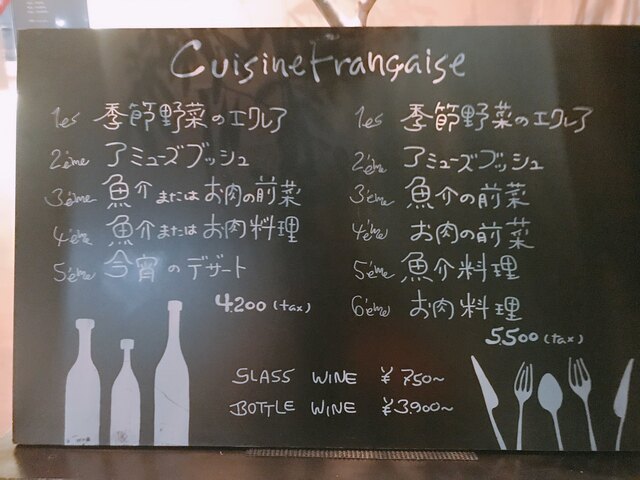 Cuisine Française
1es 季節野菜のエクレア
2ème アミューズブッシュ
3ème 魚介またはお肉の前菜
4ème 魚介またはお肉料理
5ème 今宵のデザート
4.200 (tax)
1es 季節野菜のエクレア
2ème アミューズブッシュ
3ème 魚介の前菜
4ème お肉の前菜
5ème 魚介料理
6ème お肉料理
5.500 (tax)
GLASS WINE ¥750~
BOTTLE WINE ¥3.900~